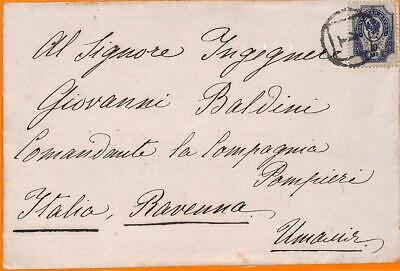 Al Signore Ingegnere
Giovanni Baldini
Comandante la Compagnia
Pompieri
Italia, Ravenna